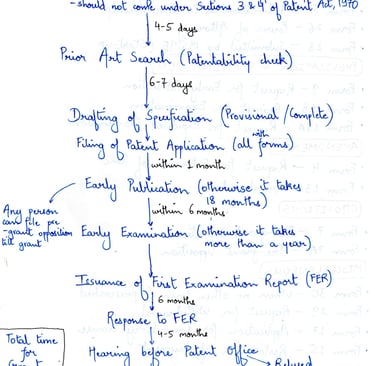 - should not come under Sections 3 & 4 of Patent Act, 1970
4-5 days
Prior Art Search (Patentability check)
6-7 days
Drafting of Specification (Provisional / Complete)
Filing of Patent Application (all with forms)
within 1 month
Early Publication (otherwise it takes
18 months)
within 6 months
Any person
can file pre
-grant opposition
till grant
Early Examination (otherwise it takes
more than a year)
Issuance of First Examination Report (FER)
6 months
Response to FER
4-5 months
Hearing before Patent Office
Refused
Total time
for